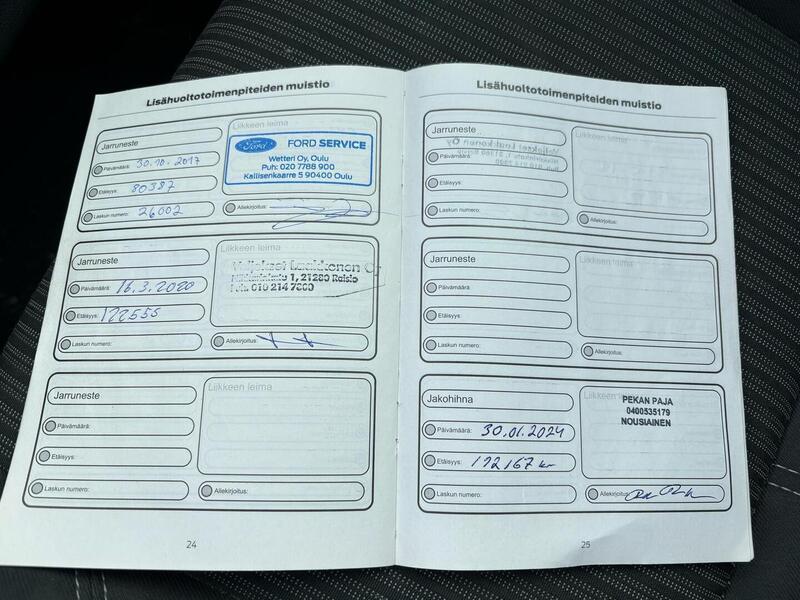 Lisähuoltotoimenpiteiden muistio
Jarruneste
Päivämäärä: 30.10.2017
Etäisyys: 80387
Laskun numero: 26002
Liikkeen leima
Ford
FORD SERVICE
Wetteri Oy, Oulu
Puh: 020 7788 900
Kallisenkaarre 5 90400 Oulu
Allekirjoitus:
Jarruneste
Päivämäärä: 16.3.2020
Etäisyys: 122555
Laskun numero:
Liikkeen leima
Veljekset Laakkonen Oy
1, 21280 Raisio
010 214 7800
Allekirjoitus:
Jarruneste
Päivämäärä:
Etäisyys:
Laskun numero:
Liikkeen leima
Allekirjoitus:
24
Lisähuoltotoimenpiteiden muistio
Jarruneste
Päivämäärä:
Etäisyys:
Laskun numero:
Liikkeen leima
Allekirjoitus:
Jarruneste
Päivämäärä:
Etäisyys:
Laskun numero:
Liikkeen leima
Allekirjoitus:
Jakohihna
Päivämäärä: 30.01.2024
Etäisyys: 192167 km
Laskun numero:
Liikkeen leima
PEKAN PAJA
0400535179
NOUSIAINEN
Allekirjoitus:
25